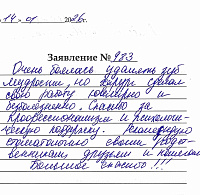 14-01 2026г.
Заявление № 983
Очень боялась удалять зуб
мудрости, но хирург сделал
свою работу ювелирно и
безболезненно. Спасибо за
профессионализм и психологи-
ческую поддержку. Рекомендую
стоматологию своим родст-
венникам, друзьям и коллегам
Большое спасибо!!!